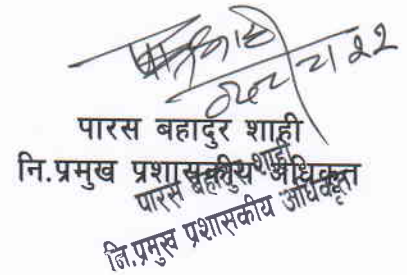 पारस बहादुर शाही
नि.प्रमुख प्रशासकीय अधिकृत
पारस बहादुर शाही
नि.प्रमुख प्रशासकीय अधिकृत